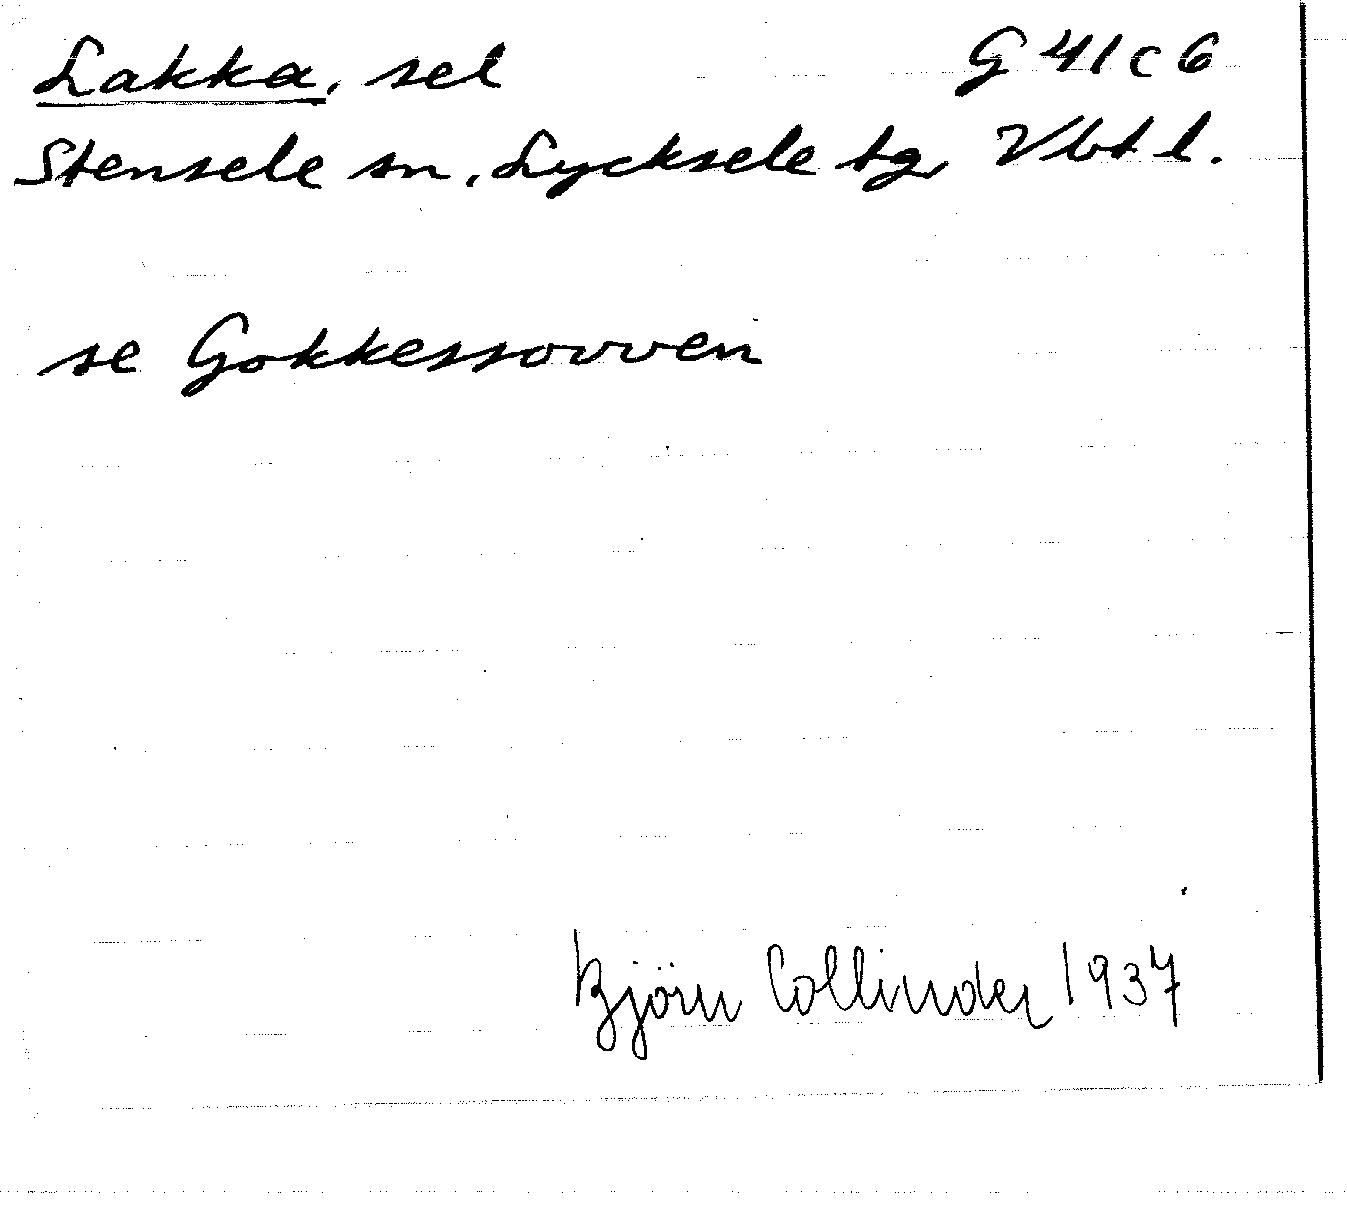 Lakka, sel G 41 c 6
Stensele sn, Lycksele tg, Vbt l.
se Gokkessovven
Björn Collinder 1937